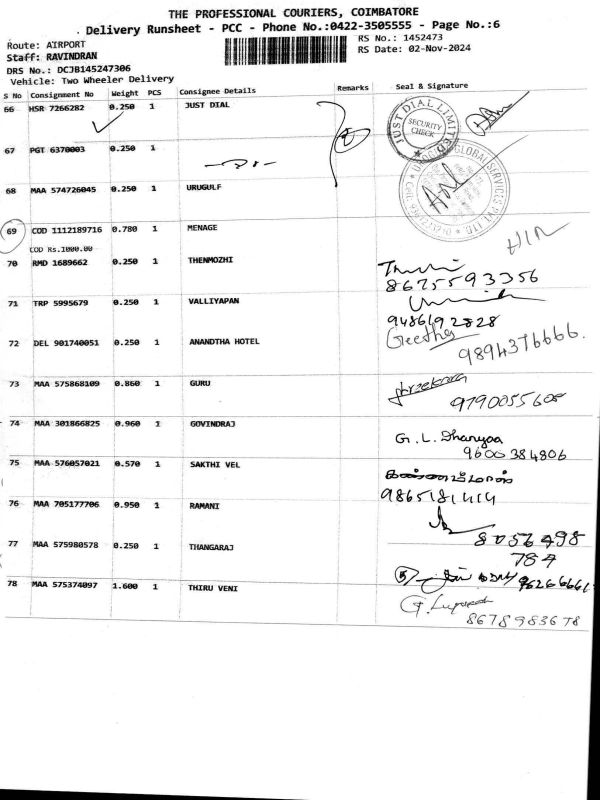 THE PROFESSIONAL COURIERS, COIMBATORE
Delivery Runsheet - PCC - Phone No.:0422-3505555 - Page No.:6
Route: AIRPORT
RS No.: 1452473
Staff: RAVINDRAN
RS Date: 02-Nov-2024
DRS No.: DCJB145247306
Vehicle: Two Wheeler Delivery
S No Consignment No Weight PCS Consignee Details Remarks Seal & Signature
66 HSR 7266282 0.250 1 JUST DIAL
JUST DIAL LIMITED
SECURITY CHECK
67 PGT 6370003 0.250 1
GLOBAL SERVICES PVT. LTD.
68 MAA 574726045 0.250 1 URUGULF
69 COD 1112189716 0.780 1 MENAGE
COD Rs.1000.00
70 RMD 1689662 0.250 1 THENMOZHI
8675593356
71 TRP 5995679 0.250 1 VALLIYAPAN
9486192828
72 DEL 901740051 0.250 1 ANANDTHA HOTEL
Geetha
9894376666.
73 MAA 575868109 0.860 1 GURU
9790055608
74 MAA 301866825 0.960 1 GOVINDRAJ
G. L. Dhanyaa
9600384806
75 MAA 576057021 0.570 1 SAKTHI VEL
9865181414
76 MAA 705177706 0.950 1 RAMANI
8056498
784
77 MAA 575980578 0.250 1 THANGARAJ
78 MAA 575374097 1.600 1 THIRU VENI
8678983678